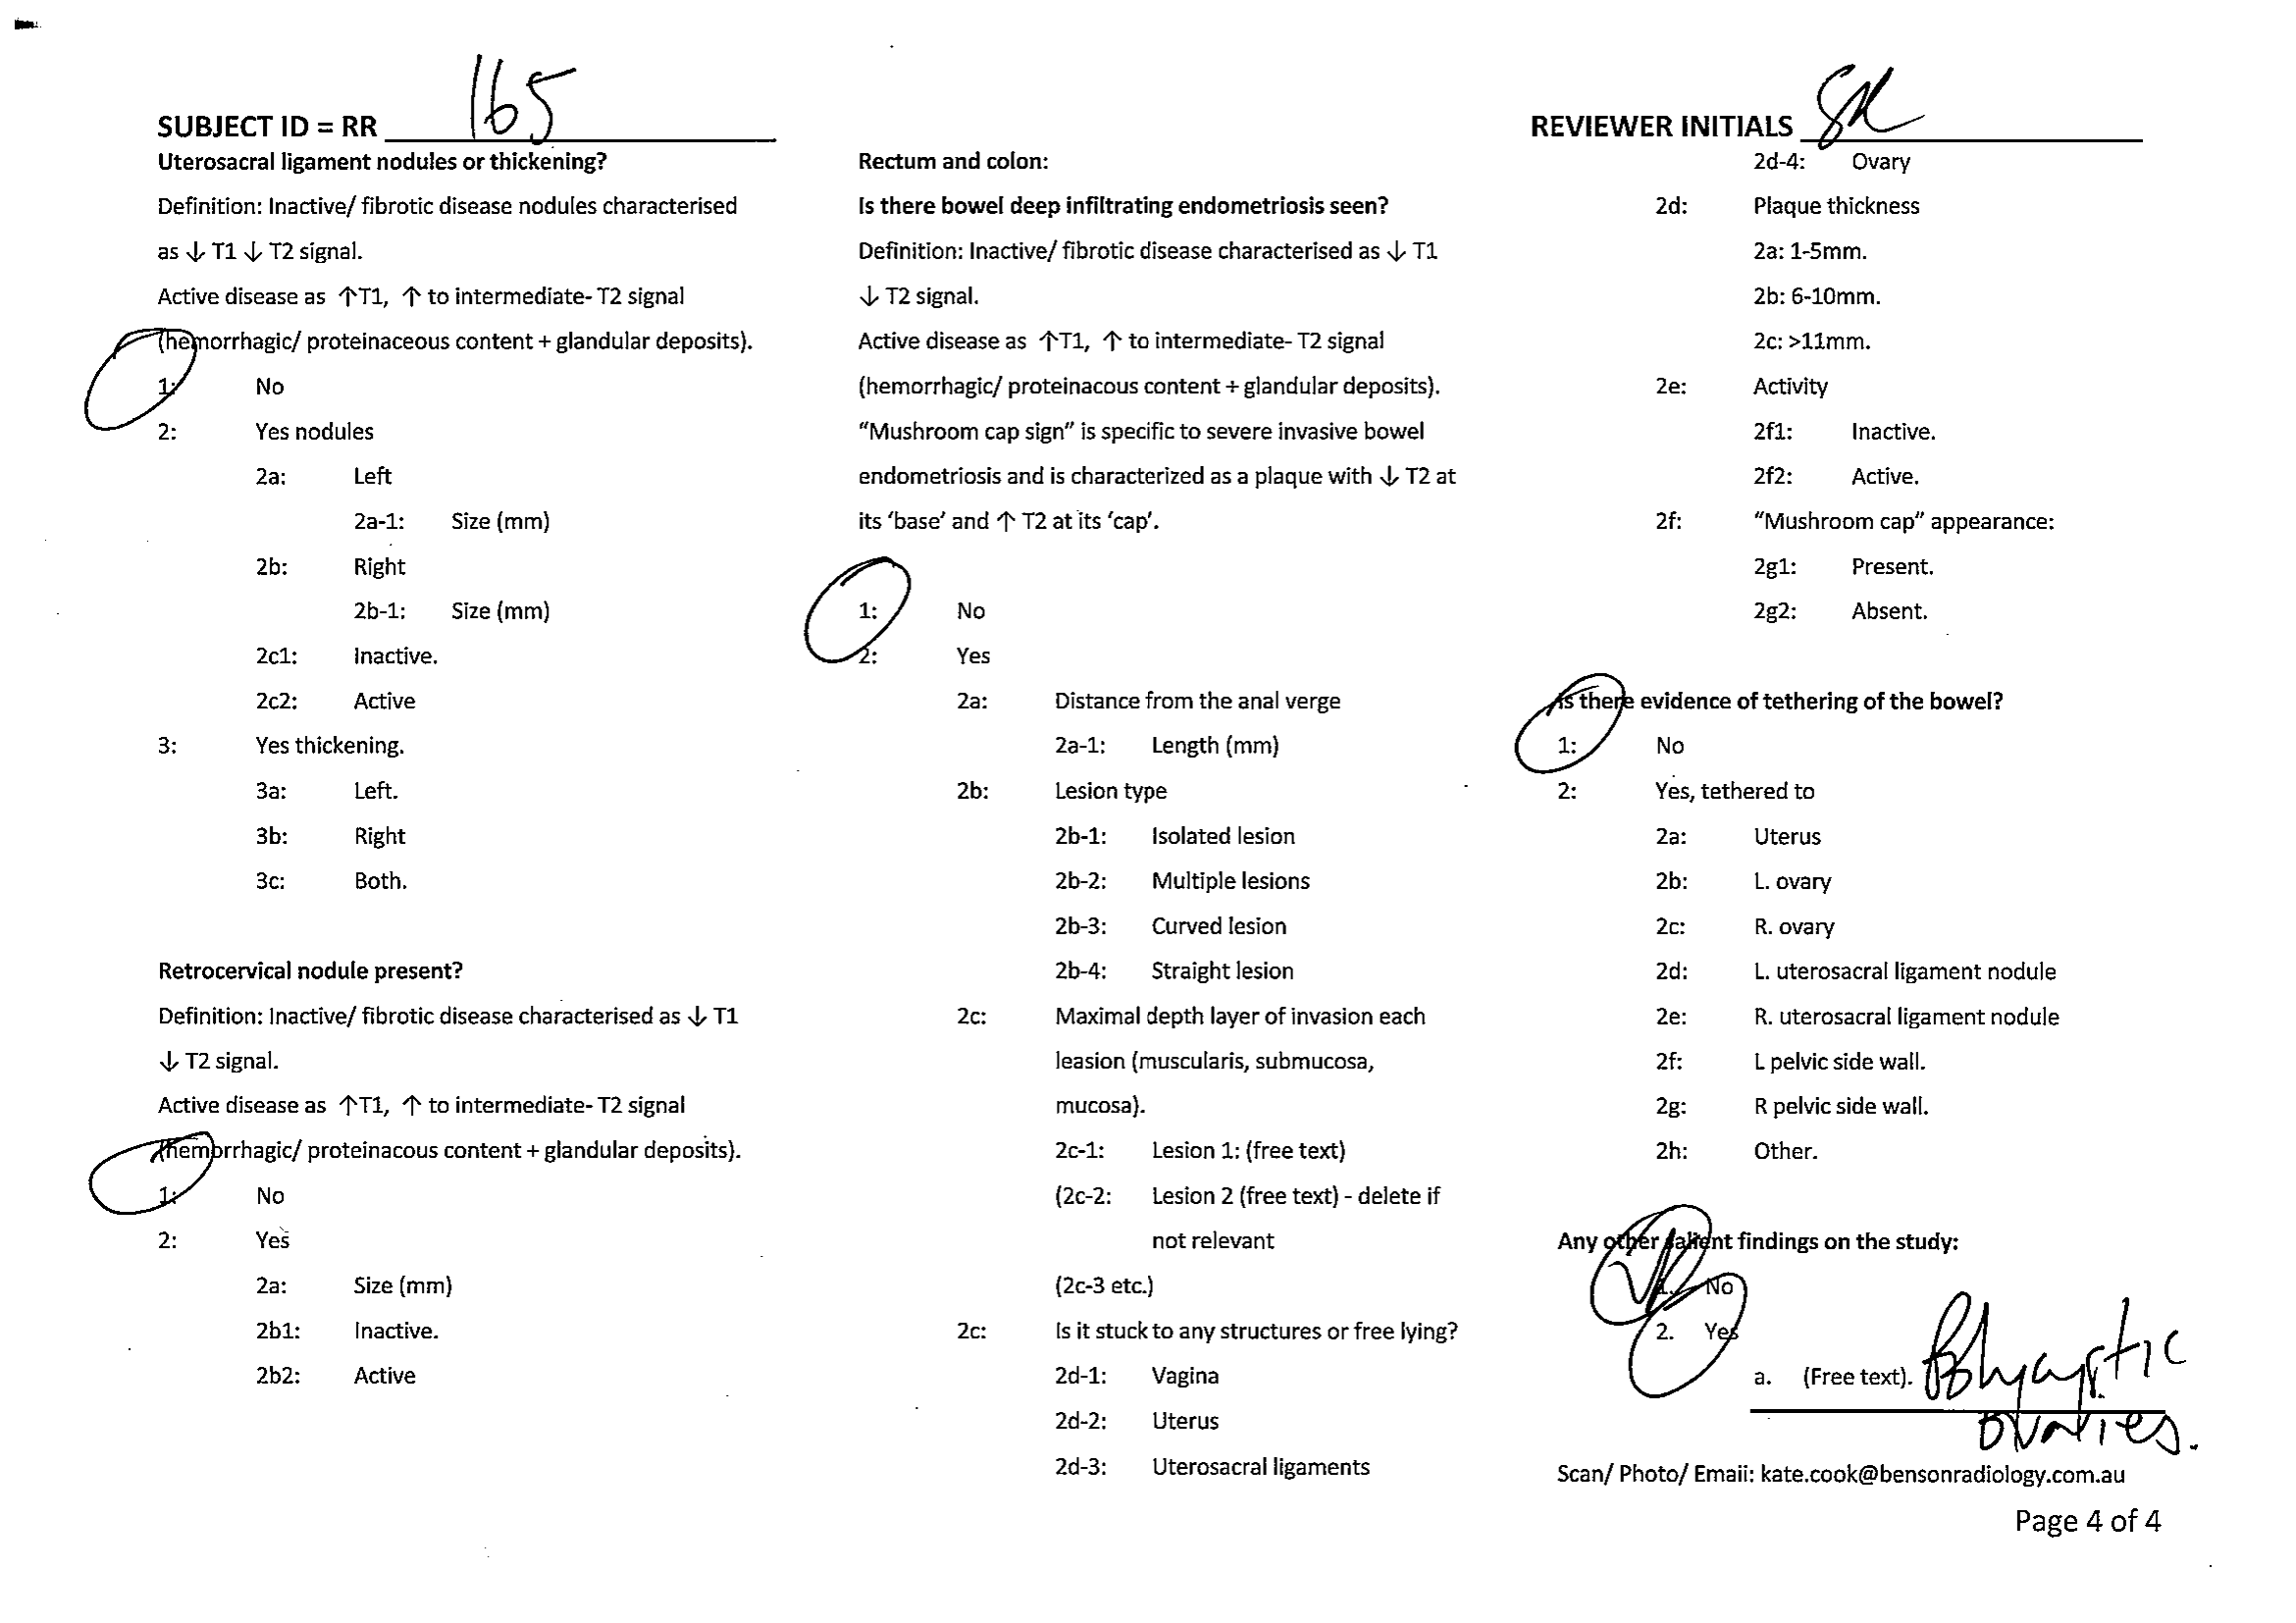 SUBJECT ID = RR 165
REVIEWER INITIALS
Uterosacral ligament nodules or thickening?
Definition: Inactive/ fibrotic disease nodules characterised
as ↓ T1 ↓ T2 signal.
Active disease as ↑T1, ↑ to intermediate- T2 signal
(hemorrhagic/ proteinaceous content + glandular deposits).
1: No
2: Yes nodules
2a: Left
2a-1: Size (mm)
2b: Right
2b-1: Size (mm)
2c1: Inactive.
2c2: Active
3: Yes thickening.
3a: Left.
3b: Right
3c: Both.
Retrocervical nodule present?
Definition: Inactive/ fibrotic disease characterised as ↓ T1
↓ T2 signal.
Active disease as ↑T1, ↑ to intermediate- T2 signal
(hemorrhagic/ proteinacous content + glandular deposits).
1: No
2: Yes
2a: Size (mm)
2b1: Inactive.
2b2: Active
Rectum and colon:
Is there bowel deep infiltrating endometriosis seen?
Definition: Inactive/ fibrotic disease characterised as ↓ T1
↓ T2 signal.
Active disease as ↑T1, ↑ to intermediate- T2 signal
(hemorrhagic/ proteinacous content + glandular deposits).
“Mushroom cap sign” is specific to severe invasive bowel
endometriosis and is characterized as a plaque with ↓ T2 at
its ‘base’ and ↑ T2 at its ‘cap’.
1: No
2: Yes
2a: Distance from the anal verge
2a-1: Length (mm)
2b: Lesion type
2b-1: Isolated lesion
2b-2: Multiple lesions
2b-3: Curved lesion
2b-4: Straight lesion
2c: Maximal depth layer of invasion each
leasion (muscularis, submucosa,
mucosa).
2c-1: Lesion 1: (free text)
(2c-2: Lesion 2 (free text) - delete if
not relevant
(2c-3 etc.)
2c: Is it stuck to any structures or free lying?
2d-1: Vagina
2d-2: Uterus
2d-3: Uterosacral ligaments
2d-4: Ovary
2d: Plaque thickness
2a: 1-5mm.
2b: 6-10mm.
2c: >11mm.
2e: Activity
2f1: Inactive.
2f2: Active.
2f: “Mushroom cap” appearance:
2g1: Present.
2g2: Absent.
Is there evidence of tethering of the bowel?
1: No
2: Yes, tethered to
2a: Uterus
2b: L. ovary
2c: R. ovary
2d: L. uterosacral ligament nodule
2e: R. uterosacral ligament nodule
2f: L pelvic side wall.
2g: R pelvic side wall.
2h: Other.
Any other salient findings on the study:
1. No
2. Yes
a. (Free text). Polycystic
ovaries.
Scan/ Photo/ Email: kate.cook@bensonradiology.com.au
Page 4 of 4